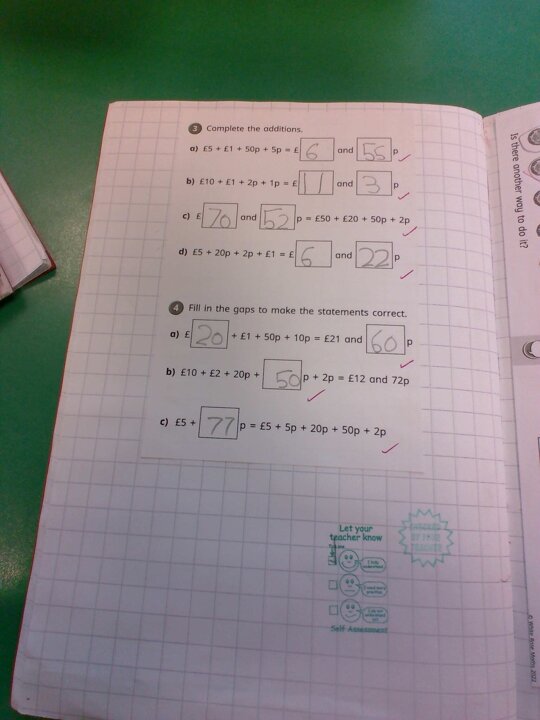 3 Complete the additions.
a) £5 + £1 + 50p + 5p = £ 6 and 55 p
b) £10 + £1 + 2p + 1p = £ 11 and 3 p
c) £ 70 and 52 p = £50 + £20 + 50p + 2p
d) £5 + 20p + 2p + £1 = £ 6 and 22 p
4 Fill in the gaps to make the statements correct.
a) £ 20 + £1 + 50p + 10p = £21 and 60 p
b) £10 + £2 + 20p + 50 p + 2p = £12 and 72p
c) £5 + 77 p = £5 + 5p + 20p + 50p + 2p
Let your
teacher know
I fully
understand
I need more
practice
I do not
understand
Self Assessment
Is there another way to do it?
© White Rose Maths 2022